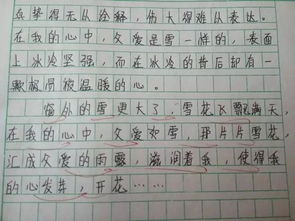 真挚得无从诠释，伟大得难以表达。
在我的心中，父爱是雪一样的，表面
上冰冷坚强，而在冰冷的背后却有一
颗极易被温暖的心。
窗外的雪更大了，雪花飞飘满天，
在我的心中，父爱如雪，那片片雪花，
汇成父爱的雨露，滋润着我，使得我
的心发芽，开花……